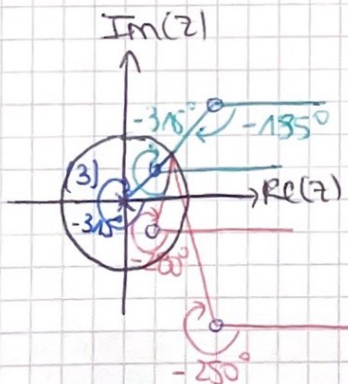 Im(z)
-315°
-135°
(3)
Re(z)
-315°
-200°
-250°